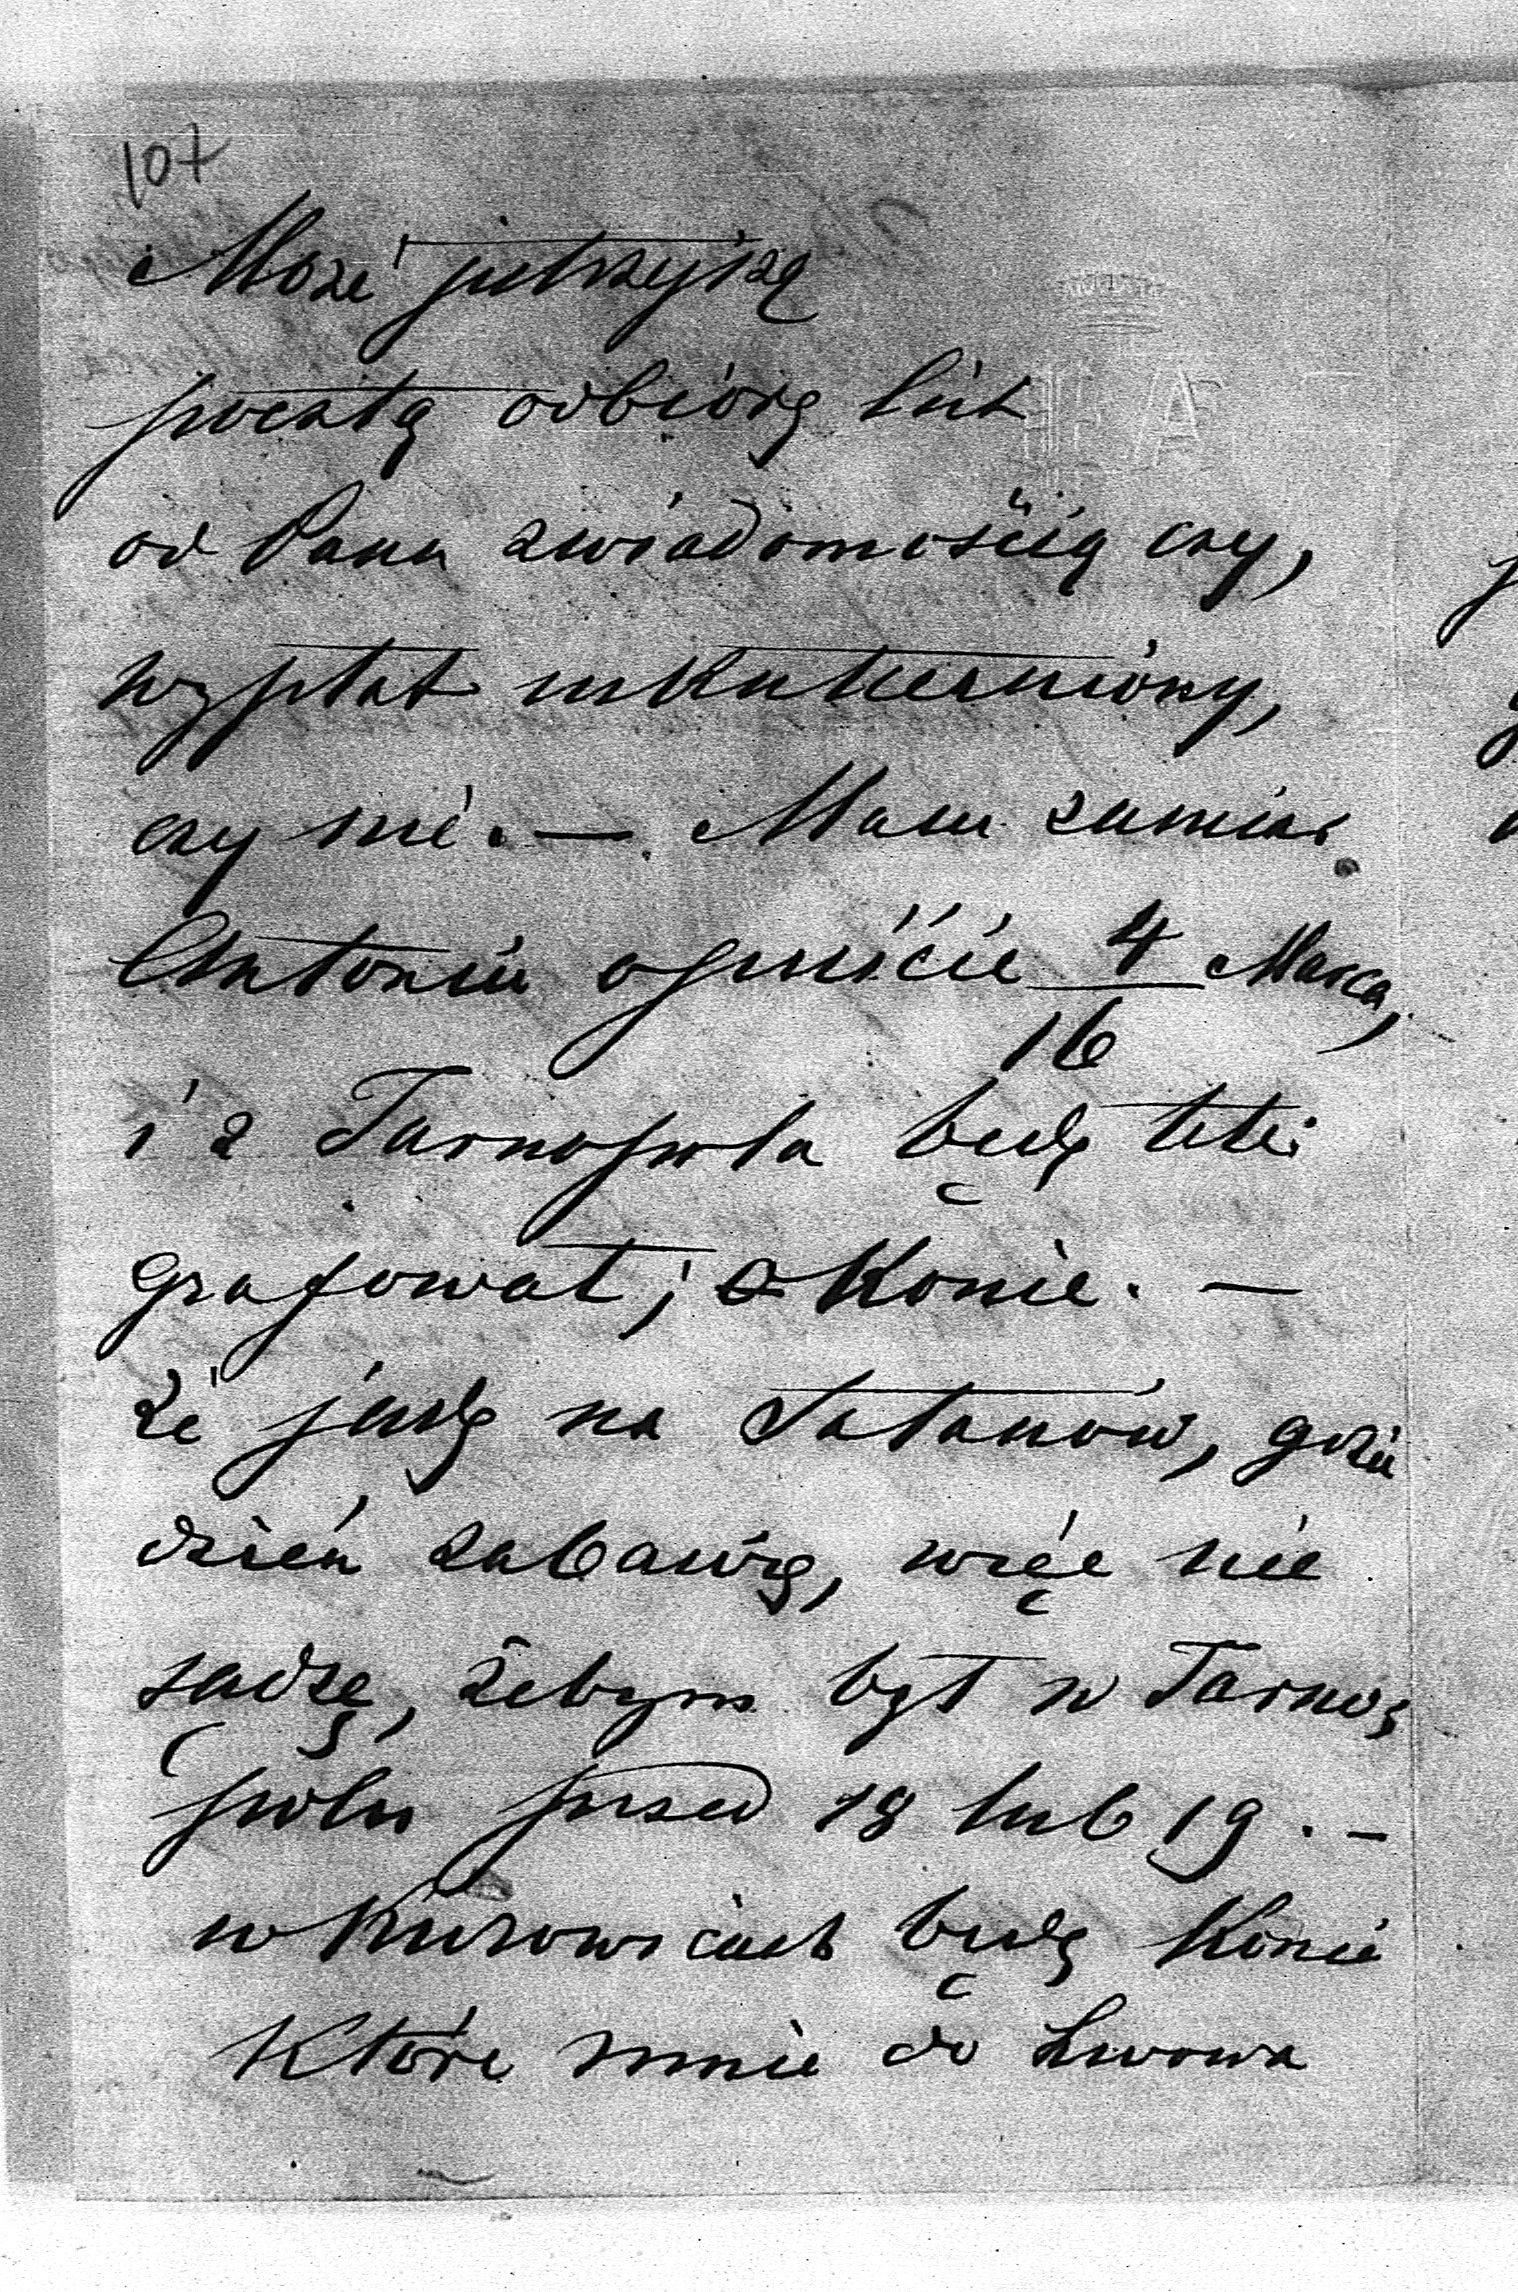 107
Może jutrzejszą
pocztą odbiorę list
od Pana z wiadomością czy,
wypłat uskuteczniony,
czy nie. — Mam zamiar
Antonin opuścić 4/16 Marca,
i z Tarnopola będę tele:
grafował, o Konie. —
że jadę na Satanów, gdzie
dzień zabawię, więc nie
sądzę, żebym był w Tarno:
polu przed 18 lub 19. —
w Kurowicach będą Konie
Które mnie do Lwowa